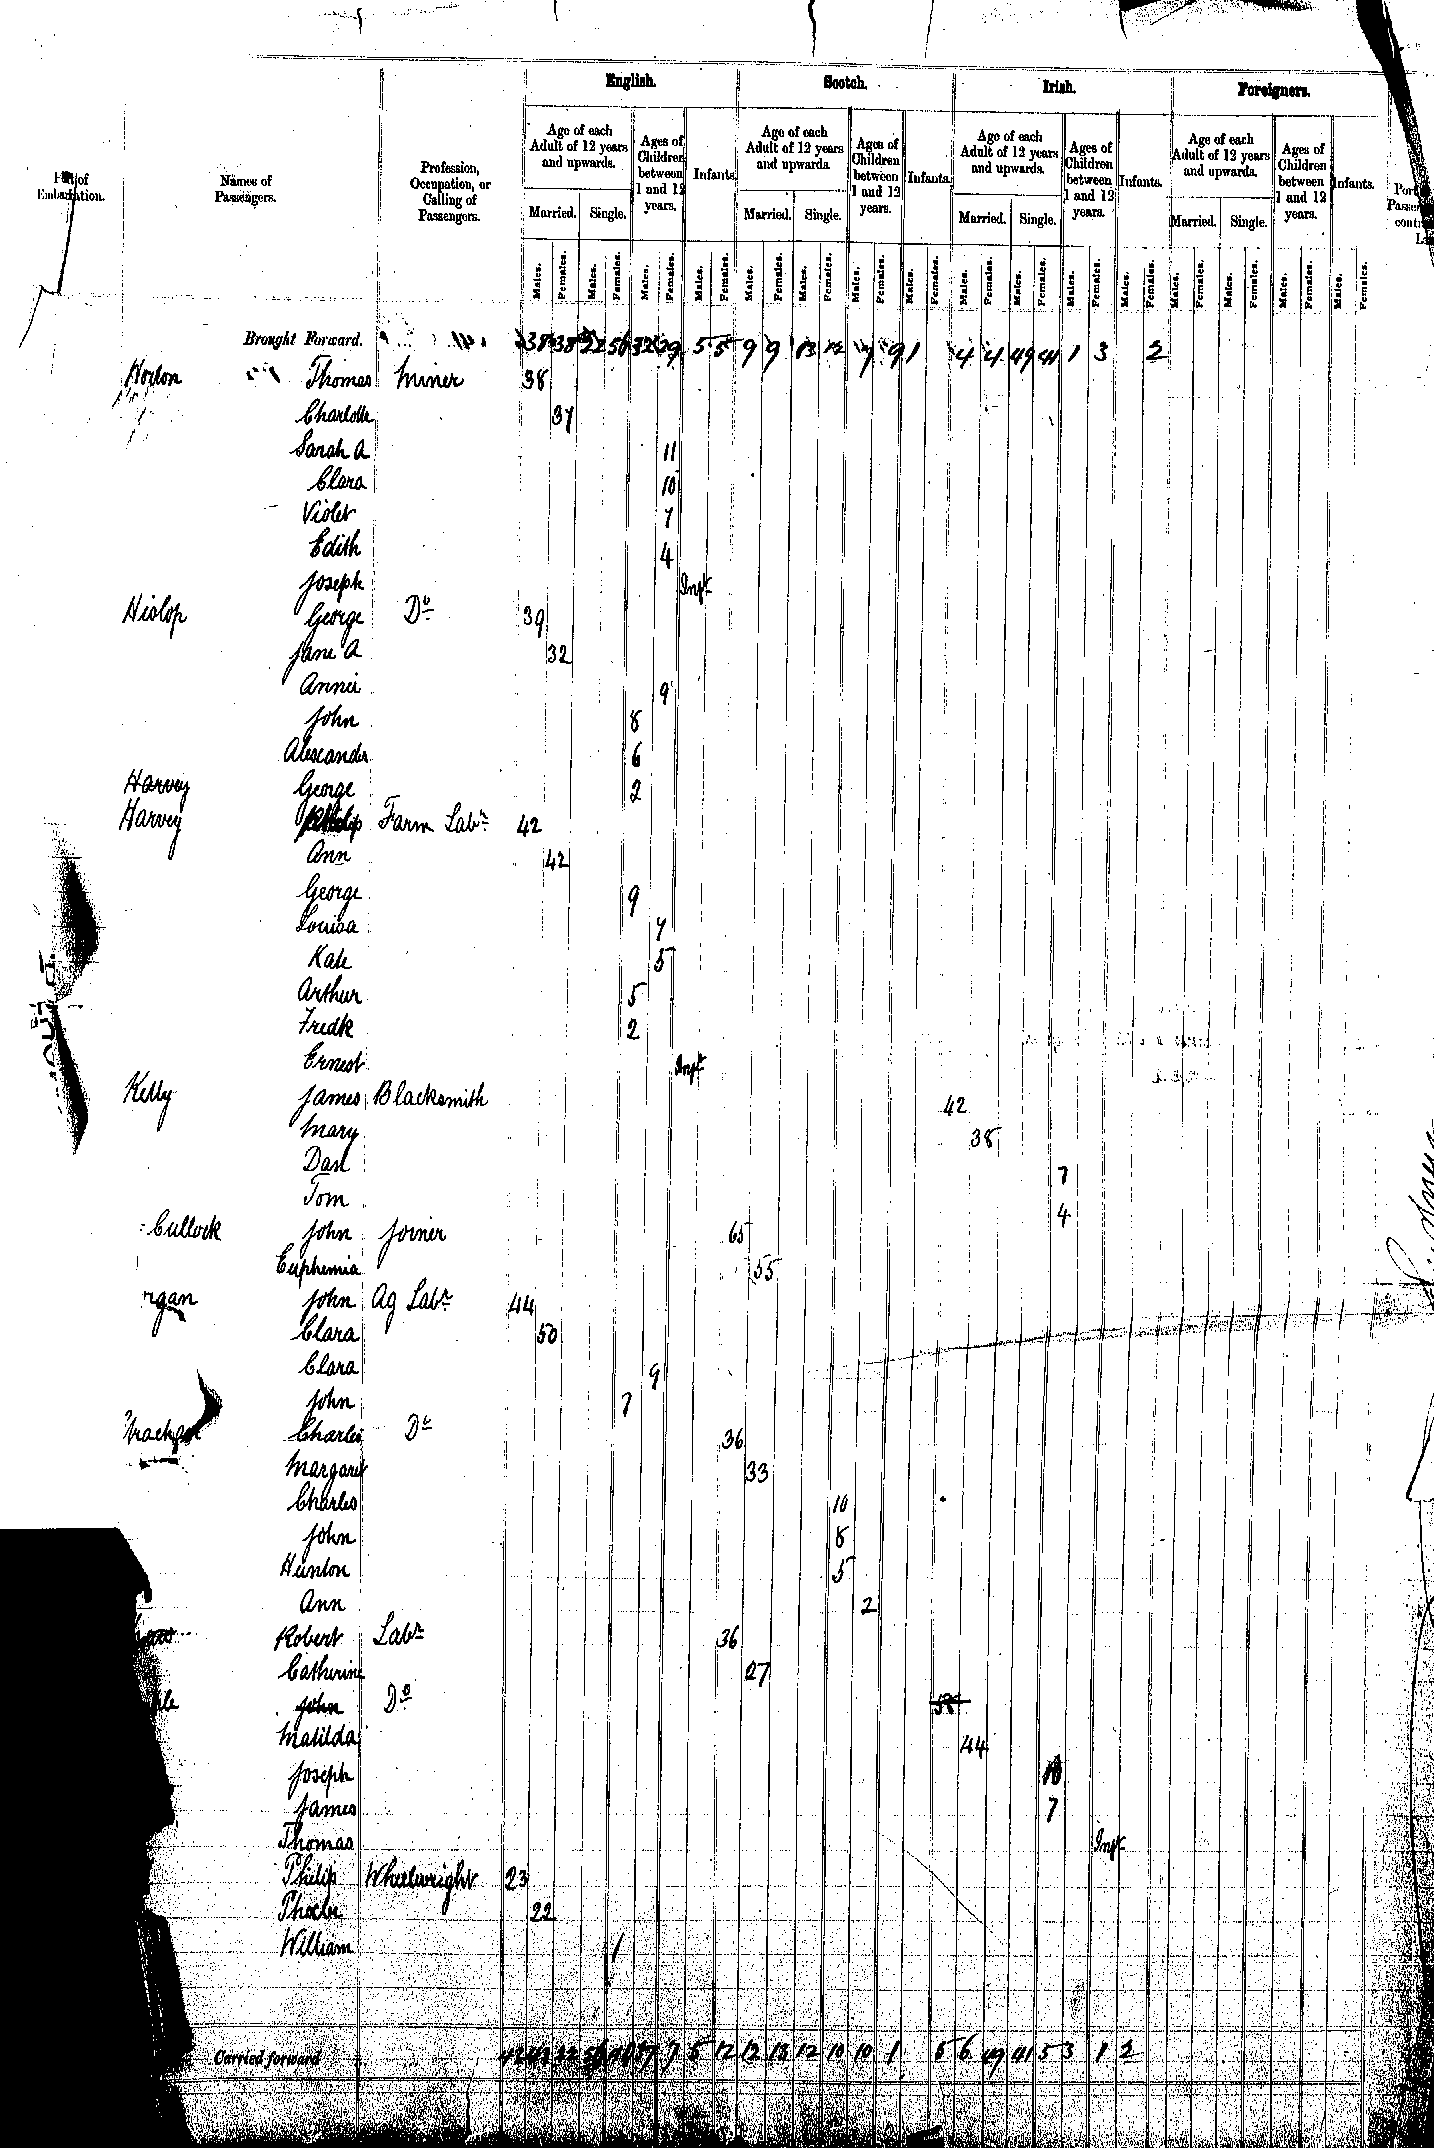 English. Scotch. Irish. Foreigners.
Names of Passengers. Profession, Occupation, or Calling of Passengers. Age of each Adult of 12 years and upwards. Ages of Children between 1 and 12 years. Infants. Age of each Adult of 12 years and upwards Ages of Children between 1 and 12 years. Infants. Age of each Adult of 12 years and upwards. Ages of Children between 1 and 12 years. Infants. Age of each Adult of 12 years and upwards. Ages of Children between 1 and 12 years. Infants.
Married. Single. Married. Single. Married. Single. Married. Single.
Males. Females. Males. Females. Males. Females. Males. Females. Males. Females. Males. Females. Males. Females. Males. Females. Males. Females. Males. Females. Males. Females. Males. Females. Males. Females. Males. Females. Males. Females. Males. Females.
Brought Forward. 38 38 22 56 32 29 5 5 9 9 13 12 7 9 1 4 4 49 41 1 3 2
Horton Thomas Miner 38
Charlotte 37
Sarah A 11
Clara 10
Violet 7
Edith 4
Joseph Inft
Hislop George Do 39
Jane A 32
Annie 9
John 8
Alexander 6
Harvey George 2
Harvey Philip Farm Labr 42
Ann 42
George 9
Louisa 7
Kate 5
Arthur 5
Fredk 2
Ernest Inft
Kelly James Blacksmith 42
Mary 38
Dan 7
Tom 4
Cullock John Joiner 65
Euphemia 55
rgan John Ag Labr 44
Clara 50
Clara 9
John 7
Charles Do 36
Margaret 33
Charles 10
John 8
Hunton 5
Ann 2
Robert Labr 36
Catherine 27
John Do 58
Matilda 44
Joseph
James 7
Thomas Inft
Philip Wheelwright 23
Phoebe 22
William 1
Carried forward 7 5 12 12 13 12 10 10 1 5 6 49 41 5 3 1 2